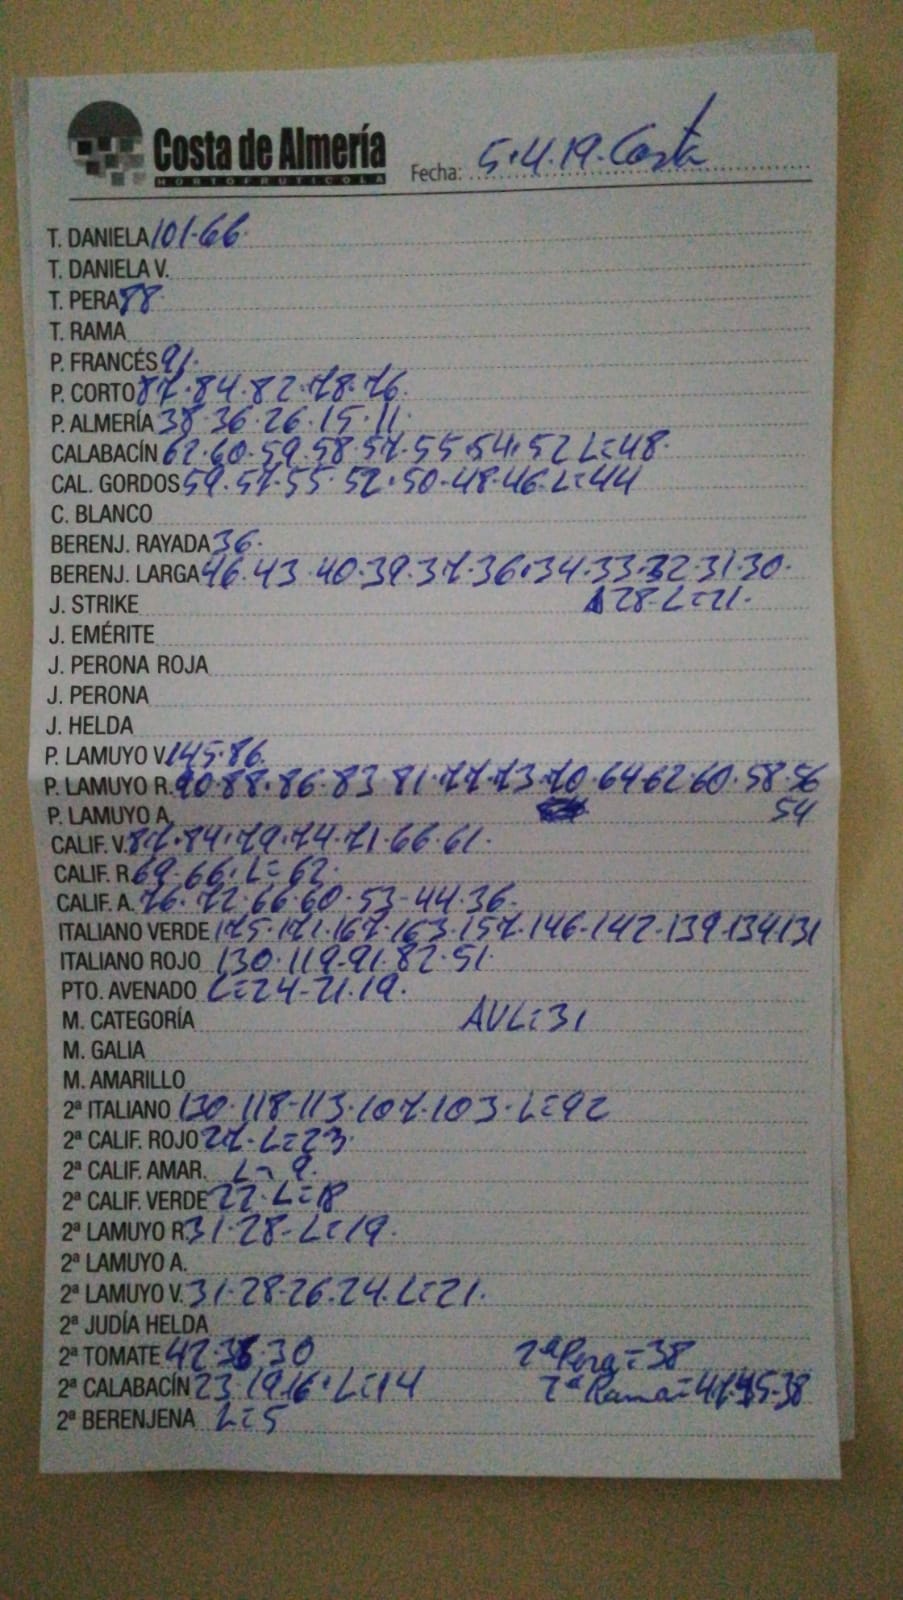 Costa de Almería
HORTOFRUTICOLA
Fecha: 5.4.19. Costa
T. DANIELA 101.66
T. DANIELA V.
T. PERA 88
T. RAMA
P. FRANCÉS 91.
P. CORTO 87.84.82.78.76
P. ALMERÍA 38.36.26.15.11.
CALABACÍN 62.60.59.58.57.55.54.52 L=48.
CAL. GORDOS 59.57.55.52.50-48-46-L=44
C. BLANCO
BERENJ. RAYADA 36.
BERENJ. LARGA 46.43.40.39.37.36.34.33.32.31.30.
J. STRIKE 28-L=21.
J. EMÉRITE
J. PERONA ROJA
J. PERONA
J. HELDA
P. LAMUYO V. 145.86.
P. LAMUYO R. 90.88.86.83.81.77.73.70.64.62.60.58.56
P. LAMUYO A. 54
CALIF. V. 87.84.79.74.71.66.61.
CALIF. R. 69.66.L=62.
CALIF. A. 76.72.66.60.53-44.36.
ITALIANO VERDE 175.171.167.163.157.146-142.139.134.131
ITALIANO ROJO 130.119-91.82.51.
PTO. AVENADO L=24-21.19.
M. CATEGORÍA AVL=31
M. GALIA
M. AMARILLO
2ª ITALIANO 130.118-113.107.103-L=92
2ª CALIF. ROJO 27-L=23.
2ª CALIF. AMAR. L= 9.
2ª CALIF. VERDE 22-L=18
2ª LAMUYO R. 31-28-L=19.
2ª LAMUYO A.
2ª LAMUYO V. 31-28-26.24.L=21.
2ª JUDÍA HELDA
2ª TOMATE 42. .30 2ª Pera=38
2ª CALABACÍN 23.19.16.L=14 2ª Rama=47.45-38
2ª BERENJENA L=5